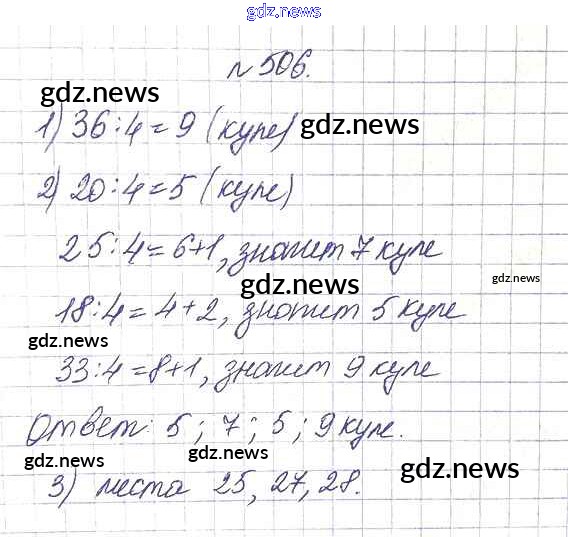 gdz.news
№ 506.
gdz.news
1) 36:4=9 (купе) gdz.news
2) 20:4=5 (купе)
25:4=6+1, значит 7 купе
gdz.news gdz.news
18:4=4+2, значит 5 купе
gdz.news
33:4=8+1, значит 9 купе
Ответ: 5; 7; 5; 9 купе.
gdz.news gdz.news gdz.news
3) места 25, 27, 28.